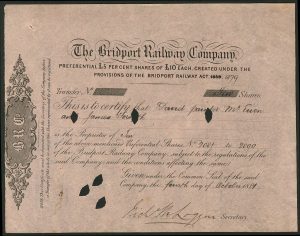 The Bridport Railway Company,
PREFERENTIAL £5 PERCENT SHARES OF £10 EACH, CREATED UNDER THE
PROVISIONS OF THE BRIDPORT RAILWAY ACT, 1879
Transfer No Ten Shares
This is to certify that David James
and James
is the Proprietor of Ten
of the above-mentioned Preferential Shares, No 2001 to
of the Bridport Railway Company, subject to the regulations of the
said Company, and the conditions affecting the same.
Given under the Common Seal of the said
Company, the fourth day of October 1881
Secretary.
BRC